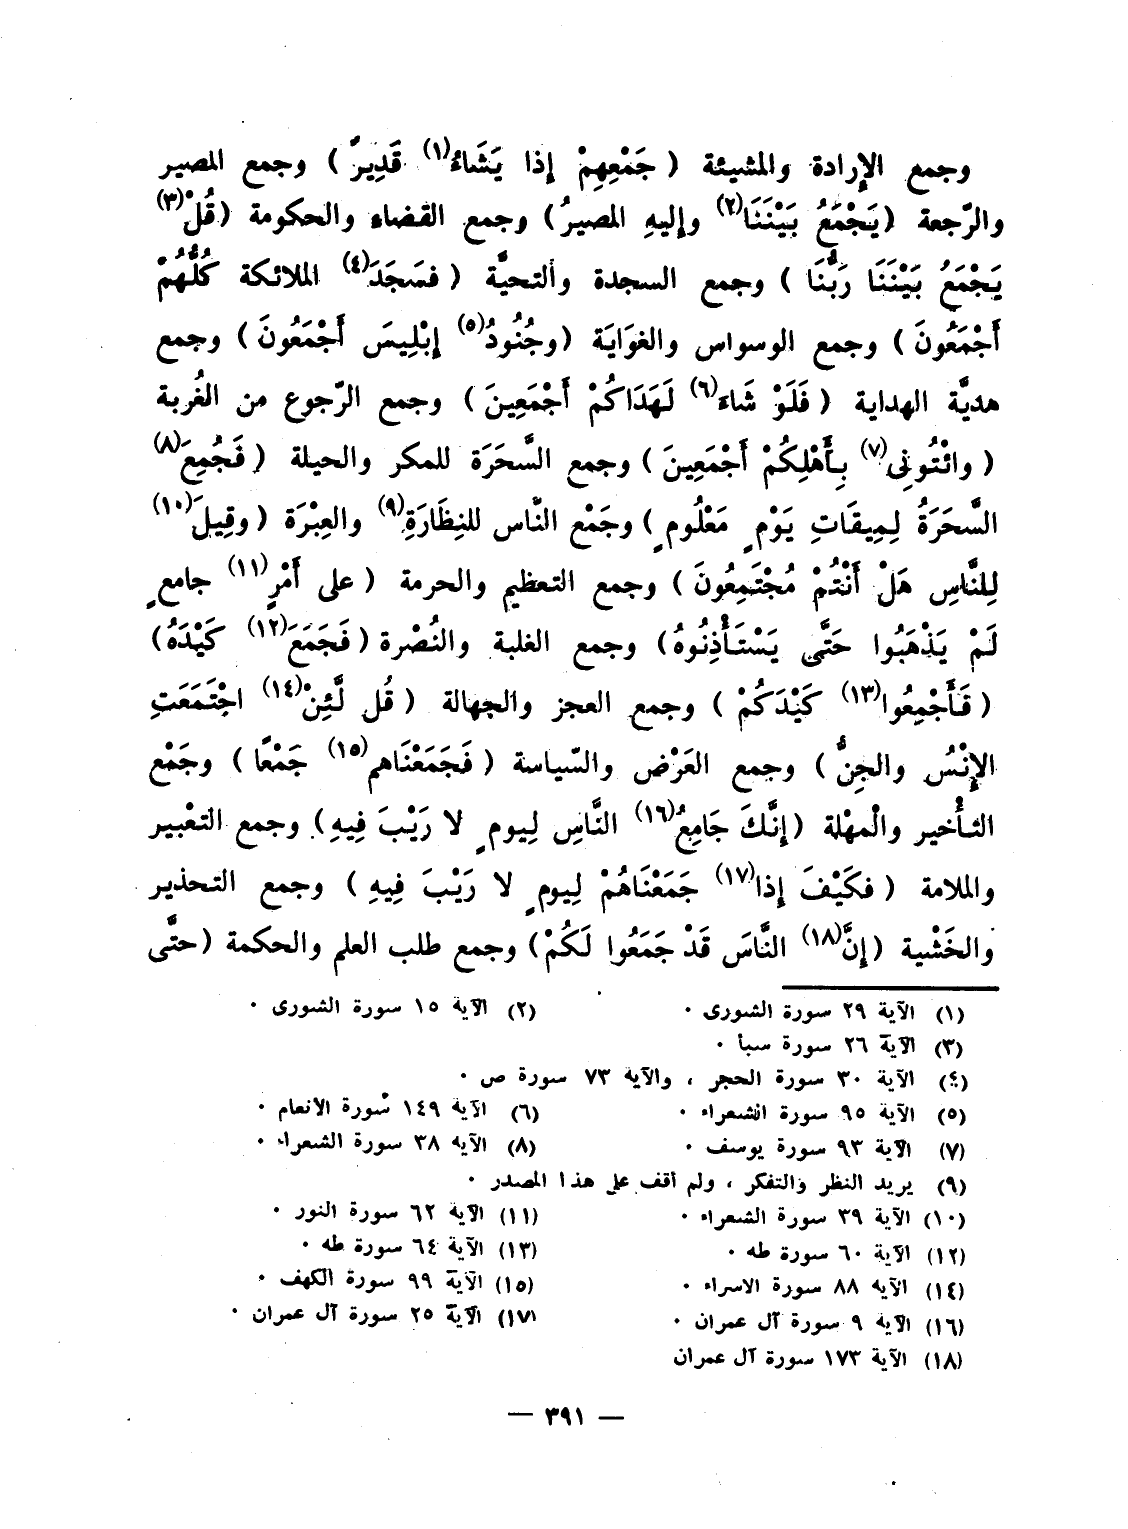 وجمع الإرادة والمشيئة ( جَمْعِهِمْ إذا يَشَاءُ(١) قَدِيرٌ ) وجمع المصير
والرّجعة (يَجْمَعُ بَيْنَنَا(٢) وإليهِ المصيرُ) وجمع القضاء والحكومة (قُلْ(٣)
يَجْمَعُ بَيْنَنَا رَبُّنَا ) وجمع السجدة وألتحيَّة ( فسَجَدَ(٤) الملائكة كُلُّهُمْ
أَجْمَعُونَ ) وجمع الوسواس والغوَايَة (وجُنُودُ(٥) إبْلِيسَ أَجْمَعُونَ ) وجمع
هديَّة الهداية ( فَلَوْ شَاءَ(٦) لَهَدَاكُمْ أَجْمَعِينَ ) وجمع الرّجوع من الغُربة
( وائْتُونِى(٧) بِأَهْلِكُمْ أَجْمَعِينَ ) وجمع السَّحَرَة للمكر والحيلة ( فَجُمِعَ(٨)
السَّحَرَةُ لِمِيقَاتِ يَوْمٍ مَعْلُومٍ ) وجَمْع النّاس للنِظَارَةِ(٩) والعِبْرَة ( وقِيلَ(١٠)
لِلنَّاسِ هَلْ أَنْتُمْ مُجْتَمِعُونَ ) وجمع التعظيم والحرمة ( على أَمْرٍ(١١) جامعٍ
لَمْ يَذْهَبُوا حَتَّى يَسْتَأْذِنُوهُ) وجمع الغلبة والنُصْرة ( فَجَمَعَ(١٢) كَيْدَهُ)
( فَأَجْمِعُوا(١٣) كَيْدَكُمْ ) وجمع العجز والجهالة ( قُل لَّئِنْ(١٤) اجْتَمَعَتِ
الإنْسُ والجِنُّ ) وجمع العَرْض والسّياسة ( فَجَمَعْنَاهم(١٥) جَمْعًا ) وجَمْع
التأْخير والْمهْلة (إنَّكَ جَامِعُ(١٦) النَّاسِ لِيومٍ لا رَيْبَ فِيهِ). وجمع التعْبير
والملامة ( فكَيْفَ إذا(١٧) جَمَعْنَاهُمْ لِيومٍ لا رَيْبَ فِيهِ ) وجمع التحذير
والخَشْية (إنَّ(١٨) النَّاسَ قَدْ جَمَعُوا لَكُمْ) وجمع طلب العلم والحكمة (حتَّى
(١) الآية ٢٩ سورة الشورى ٠ (٢) الآية ١٥ سورة الشورى ٠
(٣) الآية ٢٦ سورة سبأ ٠
(٤) الآية ٣٠ سورة الحجر ، والآية ٧٣ سورة ص ٠
(٥) الآية ٩٥ سورة الشعراء ٠ (٦) الآية ١٤٩ سورة الانعام ٠
(٧) الآية ٩٣ سورة يوسف ٠ (٨) الآية ٣٨ سورة الشعراء ٠
(٩) يريد النظر والتفكر ، ولم أقف على هذا المصدر ٠
(١٠) الآية ٣٩ سورة الشعراء ٠ (١١) الآية ٦٢ سورة النور ٠
(١٢) الآية ٦٠ سورة طه ٠ (١٣) الآية ٦٤ سورة طه ٠
(١٤) الآية ٨٨ سورة الاسراء ٠ (١٥) الآية ٩٩ سورة الكهف ٠
(١٦) الآية ٩ سورة آل عمران ٠ (١٧) الآية ٢٥ سورة آل عمران ٠
(١٨) الآية ١٧٣ سورة آل عمران
— ٣٩١ —